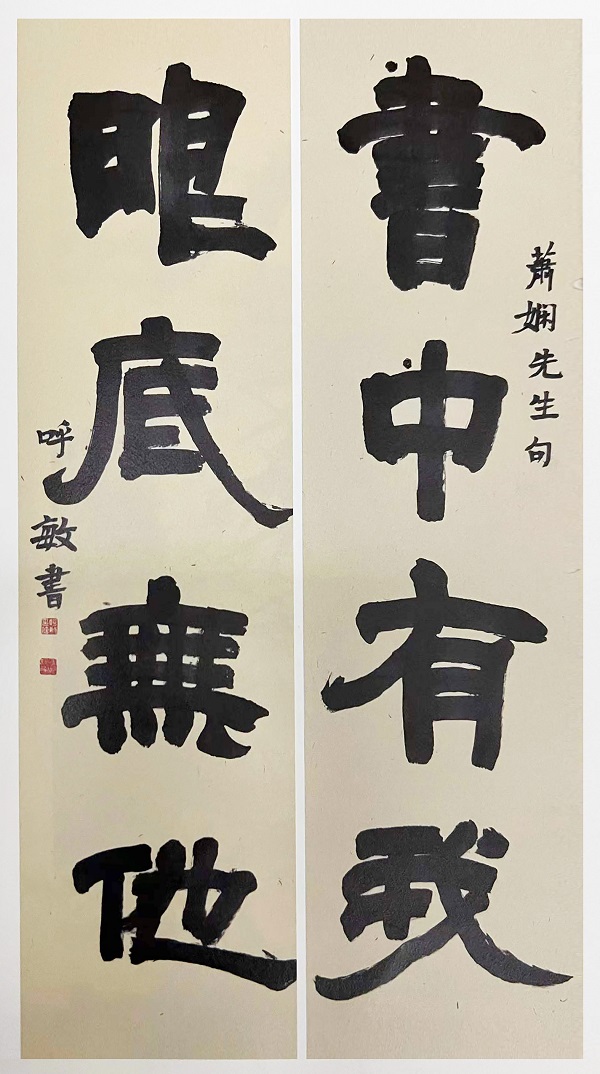 書中有我
蕭嫻先生句
眼底無他
呼敏書